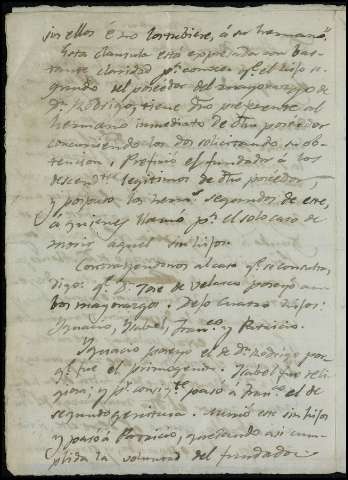 sin ellos ó no los tubiere, á su hermano.
Esta clausula está expresada con bas-
tante claridad pª conocer qe. el hijo se-
gundo del poseedor del mayorazgo de
Dn. Rodrigo, tiene dro preferente al
hermano inmediato de dho poseedor
concurriendo los dos solicitando su ob-
tencion. Prefirió el fundador á los
descendtes legitimos de dho poseedor,
y pospuso los herms. segundos de este,
á quienes llamó pª el solo caso de
morir aquel sin hijos.
Contrayendonos al caso qe. se consulta,
digo: qe. Dn. Jose de Velasco poseyó am-
bos mayorazgos. Dejo cuatro hijos:
Ygnacio, Ysabel, Franco. y Patricio.
Ygnacio poseyó el de Dn. Rodrigo por-
qe. fue el primogenito. Ysabel fue reli-
giosa; y pr. consigte. pasó á Franco. el de
segundogenitura. Murió este sin hijos
y pasó á Patricio, quedando asi cum-
plida la voluntad del fundador